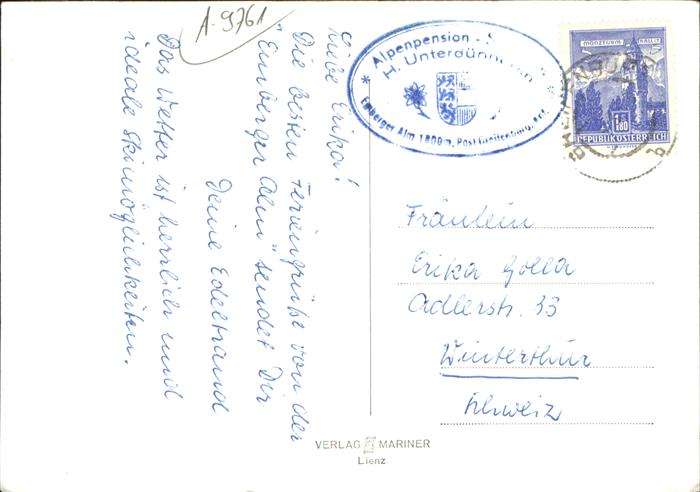 A-9761
Liebe Erika!
Die besten Feriengrüße von der
"Emberger Alm" sendet Dir
Deine Edeltraud
Das Wetter ist herrlich und
ideale Skimöglichkeiten.
Alpenpension -
H. Unterdün
* Emberger Alm 1800 m, Post *
MÜNZTURM HALL i/T
S 1.80
REPUBLIK ÖSTERREICH
Fräulein
Erika Golla
Adlerstr. 33
Winterthur
Schweiz
VERLAG MARINER
Lienz